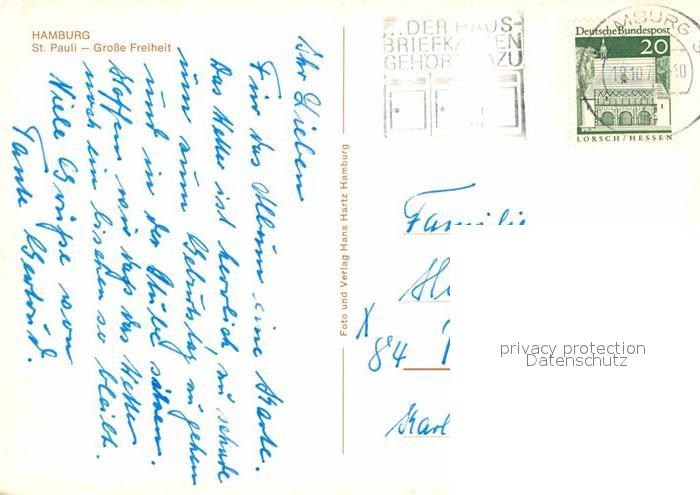 HAMBURG
St. Pauli — Große Freiheit
Ihr Lieben
Für das Album eine Karte.
Das Wetter ist herrlich, zu schade
um zum Geburtstag zu gehen
und in der Stube sitzen.
Hoffen wir daß das Wetter
noch ein bischen so bleibt.
Viele Grüße von
Tante Gertrud.
Foto und Verlag Hans Hartz Hamburg
...DER HAUS-
BRIEFKASTEN
GEHÖRT DAZU
HAMBURG
Deutsche Bundespost
20
LORSCH/HESSEN
Familie
X
84
Karl
privacy protection
Datenschutz